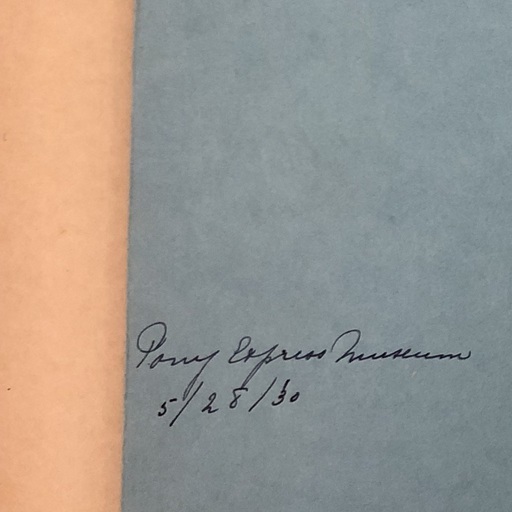 Pony Express Museum
5/28/30